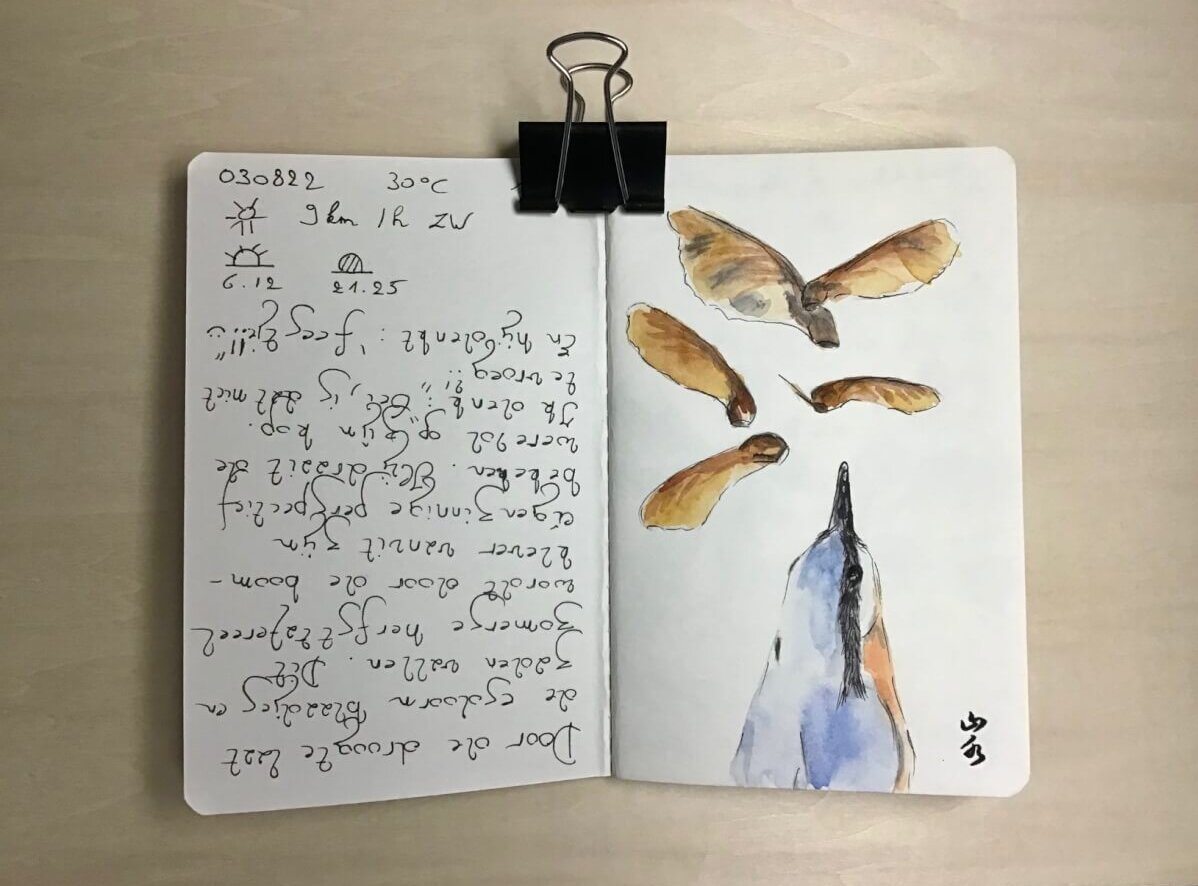 030822 30°C
9 km /h ZW
6.12 21.25
Door de droogte laat
de esdoorn blaadjes en
zaden vallen. Dit
zomerse herfsttafereel
wordt door de boom-
klever vanuit zijn
eigenzinnige perspectief
bekeken. Hij draait de
wereld op zijn kop.
Ik denk: "Oei, is dat niet
te vroeg?!"
En hij denkt: "feestje!!!"
山水